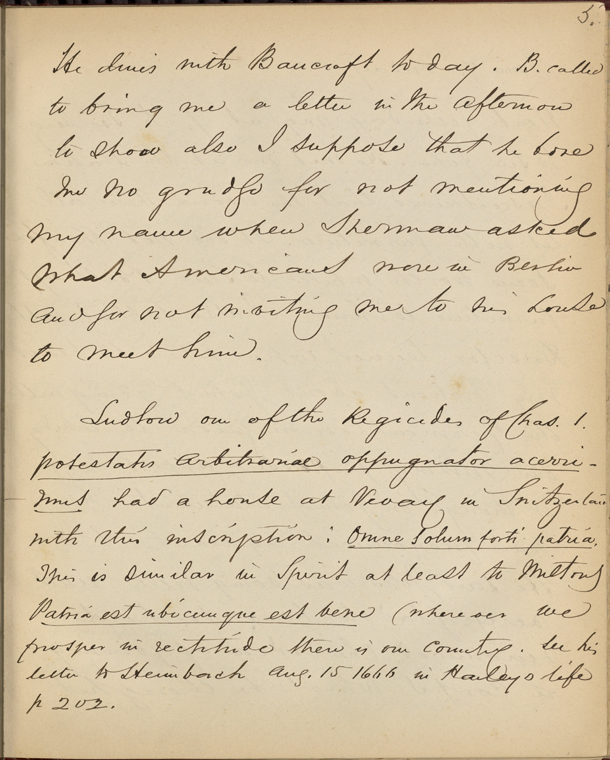 5.
He dines with Bancroft to day. B. called
to bring me a letter in the afternoon
to show also I suppose that he bore
me no grudge for not mentioning
my name when Sherman asked
what Americans were in Berlin
and for not inviting me to his house
to meet him.
Ludlow one of the Regicides of Chas. 1.
potestatis arbitrariae oppugnator acerri-
mus had a house at Vevay in Switzerland
with this inscription: Omne solum forti patria.
This is similar in Spirit at least to Miltons
Patria est ubicunque est bene (where ever we
prosper in rectitude there is our country. See his
letter to Heimbach Aug. 15 1666 in Hayleys life
p 202.